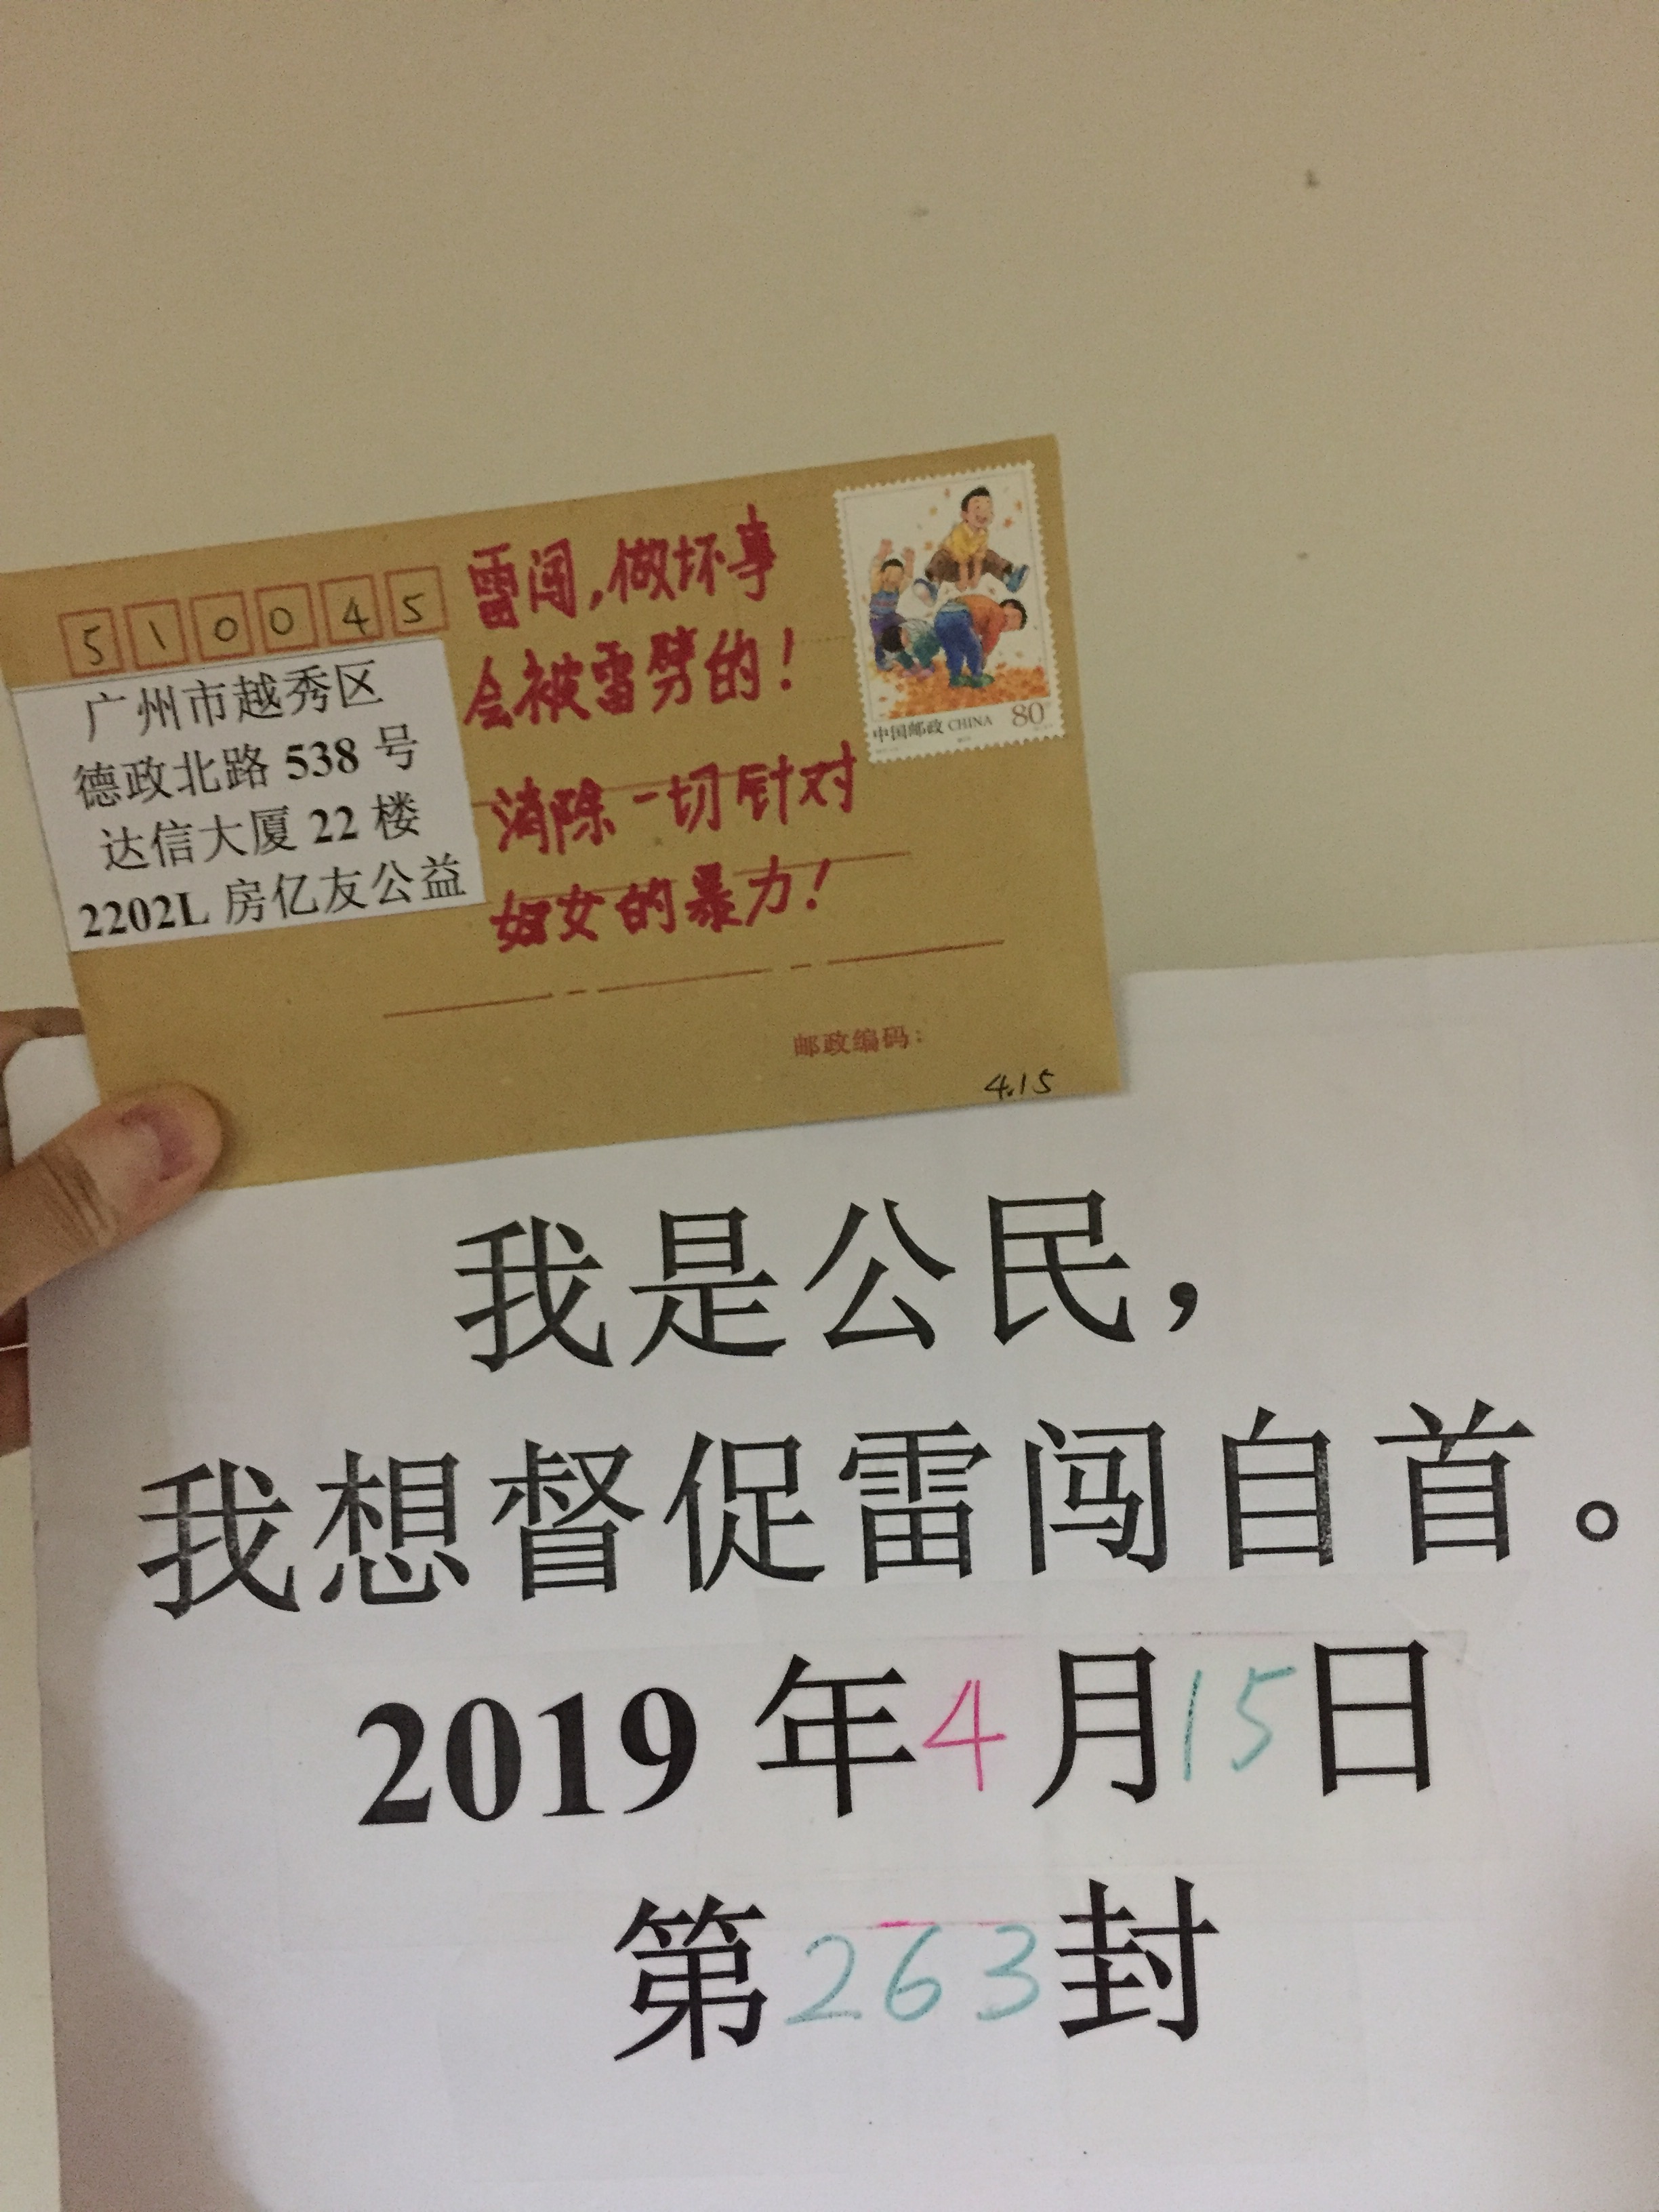 510045
广州市越秀区
德政北路 538 号
达信大厦 22 楼
2202L 房亿友公益
雷闯，做坏事
会被雷劈的！
消除一切针对
妇女的暴力！
中国邮政 CHINA 80
邮政编码：
4.15
我是公民，
我想督促雷闯自首。
2019 年 4 月 15 日
第 263 封